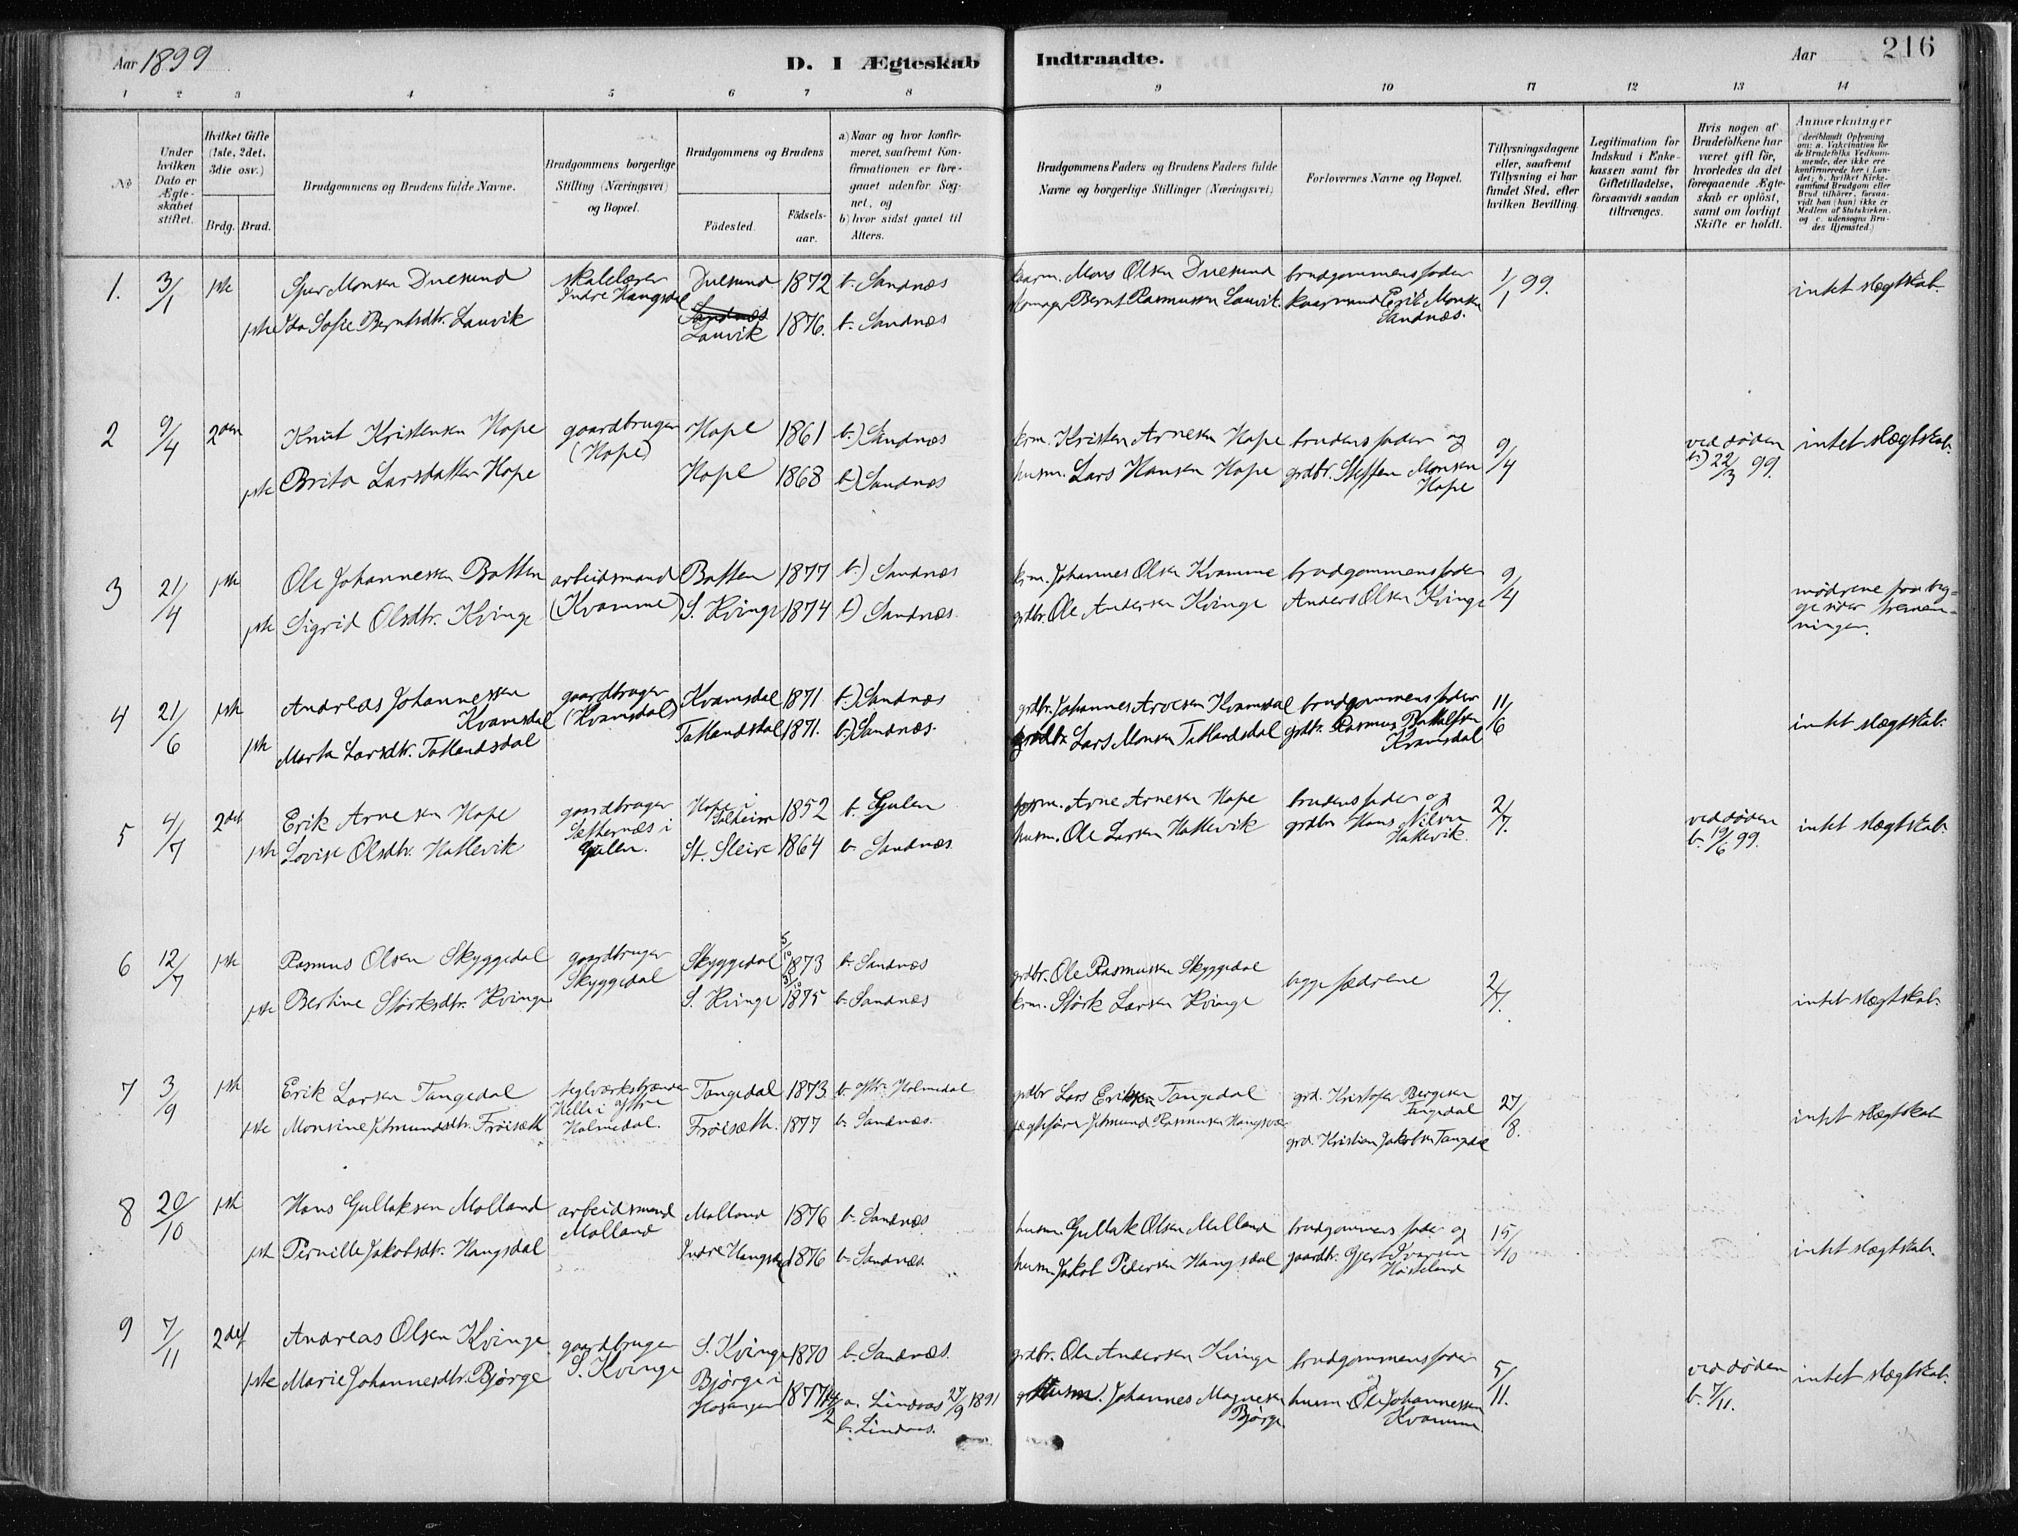 Aar 1899
D. I Ægteskab Indtraadte.
Aar 216
1 2 3 4 5 6 7 8 9 10 11 12 13 14
No
Under hvilken Dato er Ægteskabet stiftet.
Hvilket Gifte (1ste, 2det, 3die osv.)
Brdg. Brud.
Brudgommens og Brudens fulde Navne.
Brudgommens borgerlige Stilling (Næringsvei) og Bopæl.
Brudgommens og Brudens
Fødested. Fødselsaar.
a) Naar og hvor konfirmeret, saafremt Konfirmationen er foregaaet udenfor Sognet, og
b) hvor sidst gaaet til Alters.
Brudgommens Faders og Brudens Faders fulde Navne og borgerlige Stillinger (Næringsvei)
Forlovernes Navne og Bopæl.
Tillysningsdagene eller, saafremt Tillysning ei har fundet Sted, efter hvilken Bevilling.
Legitimation for Indskud i Enkekassen samt for Giftetilladelse, forsaavidt saadan tiltrænges.
Hvis nogen af Brudefolkene har været gift før, hvorledes da det foregaaende Ægteskab er opløst, samt om lovligt Skifte er holdt.
Anmærkninger (deriblandt Oplysning om: a. Vakcination for de Brudefolks Vedkommende, der ikke ere konfirmerede her i Landet; b. hvilket Kirkesamfund Brudgom eller Brud tilhører, forsaavidt han (hun) ikke er Medlem af Statskirken, og c. udensogns Brudes Hjemsted.)
1. 3/1 1ste Monsen Duesund Indre Haugsdal Duesund 1872 b. Sandnæs Mons Olsen Duesund brudgommens fader 1/1 99. intet slægtskab.
1ste Ida Sofie Berntsdtr. Lauvik Sandnæs Lauvik 1876. b. Sandnæs Bernt Rasmussen Lauvik. kaarmand Erik Monsen Sandnæs.
2 9/4 2den Knut Kristensen Hope gaardbruger (Hope) Hope 1861 b.) Sandnæs krm. Kristen Arnesen Hope brudens fader og 9/4 ved døden b.) 22/3 99. intet slægtskab.
1ste Brita Larsdatter Hope Hope 1868 b.) Sandnæs husm. Lars Hansen Hope grdbr. Steffen Monsen Hope
3 21/4 1ste Ole Johannessen Botten arbeidsmand (Kvamme) Botten 1877 b.) Sandnæs krm. Johannes Olsen Kvamme brudgommens fader 9/4
1ste Sigrid Olsdtr. Kvinge S. Kvinge 1874 b) Sandnæs. grdbr. Ole Andersen Kvinge Anders Olsen Kvinge mødrene fra begge sider tremenninger.
4 21/6 1ste Andreas Johannessen Kvamsdal gaardbruger (Kvamsdal) Kvamsdal 1871 b.) Sandnæs grdbr. Johannes Kvamsdal brudgommens fader 11/6 intet slægtskab.
1ste Marta Larsdtr. Totlandsdal Totlandsdal 1871. b.) Sandnæs. Lars Monsen Totlandsdal grdbr. Rasmus Kvamsdal
5 4/7 2det Erik Arnesen Hope gaardbruger i Gulen. Hope i 1852 b. Gulen Arne Arnesen Hope brudens fader og 2/7. ved døden b. 19/6 99. intet slægtskab.
1ste Lovise Olsdtr. Hattevik St. Sleire 1864 b. Sandnæs. husm. Ole Larsen Hattevik grdbr Hans Nilsen Hattevik.
6 12/7 1ste Rasmus Olsen Skyggedal gaardbruger Skyggedal Skyggedal 1873 b. Sandnæs grdbr. Ole Rasmussen Skyggedal begge fædrene 2/7. intet slægtskab.
1ste Bertine Størksdtr. Kvinge S. Kvinge 1875 b. Sandnæs krm. Størk Larsen Kvinge
7 3/9 1ste Erik Larsen Tangedal Helle i Holmedal. Tangedal 1873 b. Holmedal grdbr Lars Eriksen Tangedal grd. Kristofer Tangedal 27/8. intet slægtskab
1ste Monsine Frøisæth Frøisæth. 1877 b. Sandnæs. Rasmussen grd. Kristian Jakobsen Tangedal
8 20/10 1ste Hans Gullaksen Molland arbeidsmand Molland Molland 1876 b. Sandnæs husm. Gullak Olsen Molland brudgommens fader og 15/10 intet slægtskab.
1ste Pernille Jakobsdtr. Haugsdal Indre Haugsdal 1876 b. Sandnæs. husm. Jakob Pedersen Haugsdal gaardbr. Gjert Ivarsen
9 7/11 2det Andreas Olsen Kvinge gaardbruger S. Kvinge S. Kvinge 1870 b. Sandnæs. grdbr. Ole Andersen Kvinge brudgommens fader og 5/11. ved døden b. 7/11. intet slægtskab.
1ste Marie Johannesdtr. Bjørge Bjørge i Hosanger 1877 14/2 a. Lindaas 27/9 1891 b. Lindaas. husm. Johannes Magnesen Bjørge husm Ole Johannessen Kvamme